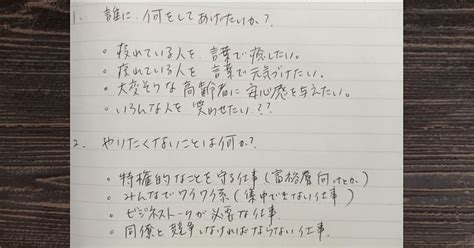 1. 誰に、何をしてあげたいか?
・疲れている人を、言葉で癒したい。
・疲れている人を 言葉で元気づけたい。
・大変そうな高齢者に安心感を与えたい。
・いろんな人を 笑わせたい??
2. やりたくないことは何か?
・特権的なことを守る仕事(富裕層向けとか)
・みんなでワイワイ系(集中できない仕事)
・ビジネストークが必要な仕事.
・同僚と競争しなければならない仕事.